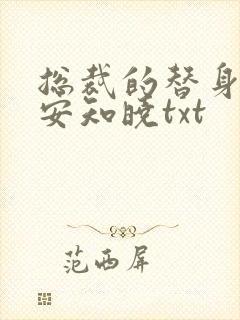 总裁的替身
安知晓txt
范西屏